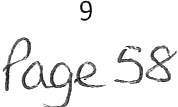 9
Page 58